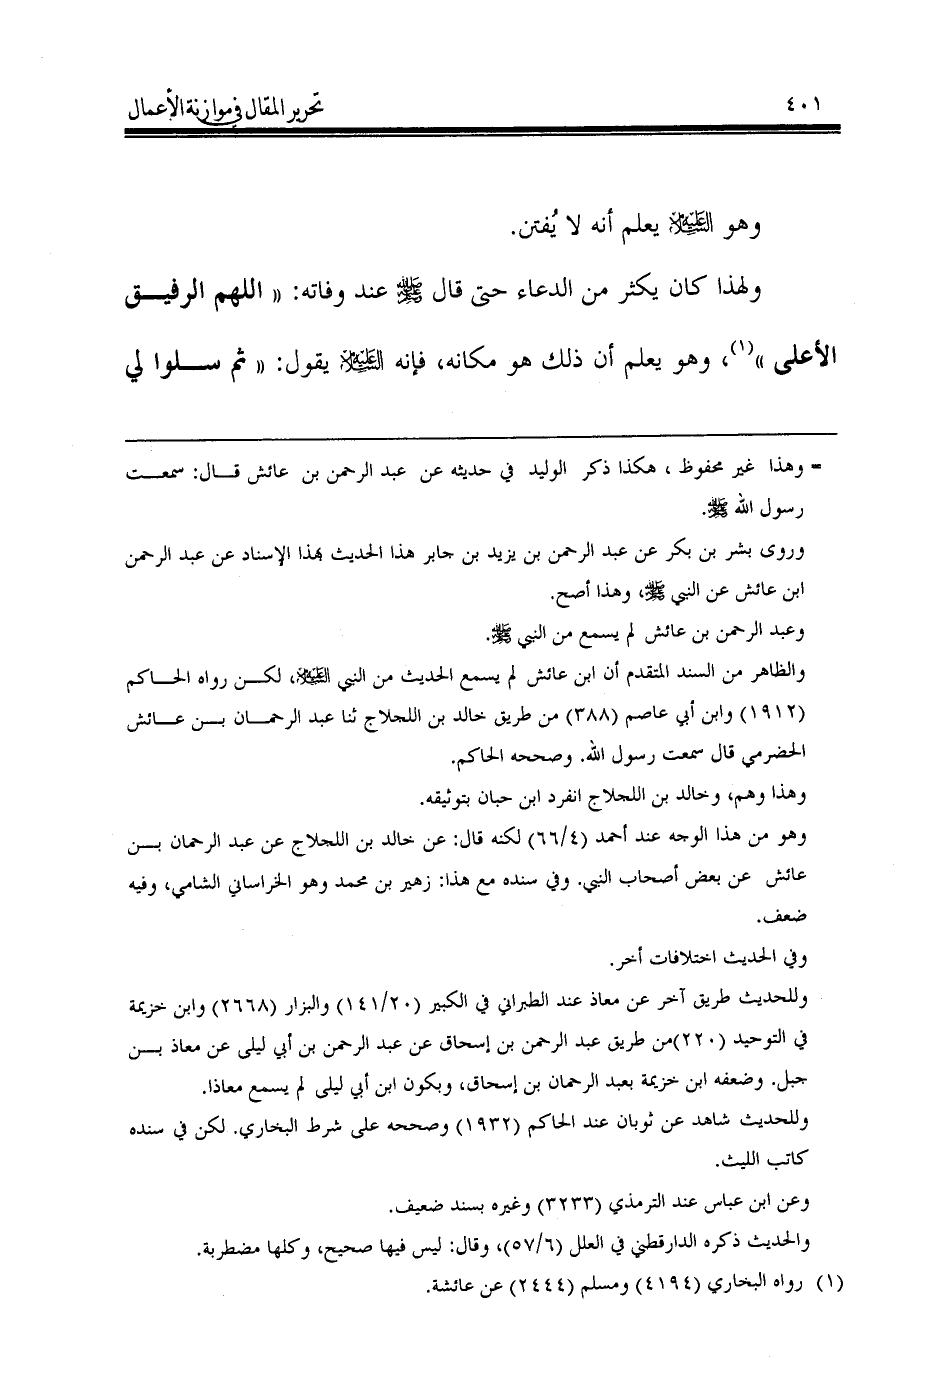 ٤٠١
تحرير المقال في موازنة الأعمال
وهو العليه السلام يعلم أنه لا يُفتن.
ولهذا كان يكثر من الدعاء حتى قال ﷺ عند وفاته: « اللهم الرفيـــق
الأعلى »(١)، وهو يعلم أن ذلك هو مكانه، فإنه العليه السلام يقول: « ثم ســـلوا لي
= وهذا غير محفوظ ، هكذا ذكر الوليد في حديثه عن عبد الرحمن بن عائش قـــال: سمعـــت
رسول الله ﷺ.
وروى بشر بن بكر عن عبد الرحمن بن يزيد بن جابر هذا الحديث بهذا الإسناد عن عبد الرحمن
ابن عائش عن النبي ﷺ، وهذا أصح.
وعبد الرحمن بن عائش لم يسمع من النبي ﷺ.
والظاهر من السند المتقدم أن ابن عائش لم يسمع الحديث من النبي العليه السلام، لكـــن رواه الحـــاكم
(١٩١٢) وابن أبي عاصم (٣٨٨) من طريق خالد بن اللجلاج ثنا عبد الرحمـــان بـــن عـــائش
الحضرمي قال سمعت رسول الله. وصححه الحاكم.
وهذا وهم، وخالد بن اللجلاج انفرد ابن حبان بتوثيقه.
وهو من هذا الوجه عند أحمد (٦٦/٤) لكنه قال: عن خالد بن اللجلاج عن عبد الرحمان بـــن
عائش عن بعض أصحاب النبي. وفي سنده مع هذا: زهير بن محمد وهو الخراساني الشامي، وفيه
ضعف.
وفي الحديث اختلافات أخر.
وللحديث طريق آخر عن معاذ عند الطبراني في الكبير (١٤١/٢٠) والبزار (٢٦٦٨) وابن خزيمة
في التوحيد (٢٢٠)من طريق عبد الرحمن بن إسحاق عن عبد الرحمن بن أبي ليلى عن معاذ بـــن
جبل. وضعفه ابن خزيمة بعبد الرحمان بن إسحاق، وبكون ابن أبي ليلى لم يسمع معاذا.
وللحديث شاهد عن ثوبان عند الحاكم (١٩٣٢) وصححه على شرط البخاري. لكن في سنده
كاتب الليث.
وعن ابن عباس عند الترمذي (٣٢٣٣) وغيره بسند ضعيف.
والحديث ذكره الدارقطني في العلل (٥٧/٦)، وقال: ليس فيها صحيح، وكلها مضطربة.
(١) رواه البخاري (٤١٩٤) ومسلم (٢٤٤٤) عن عائشة.